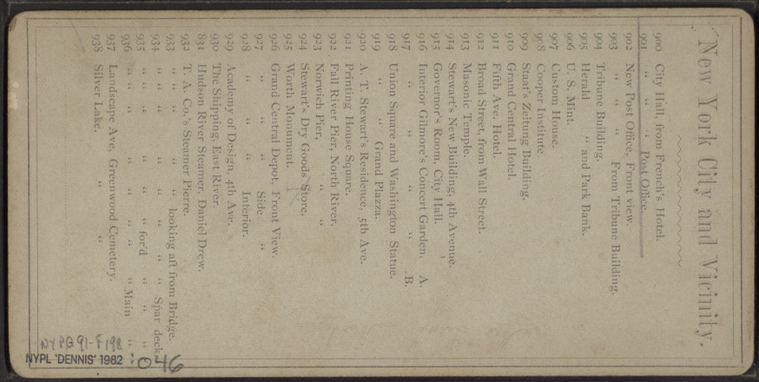 New York City and Vicinity.
900 City Hall, from French's Hotel.
901 " " " Post Office.
902 New Post Office, Front view.
903 " " " From Tribune Building.
904 Tribune Building.
905 Herald " and Park Bank.
906 U. S. Mint.
907 Custom House.
908 Cooper Institute
909 Staat's Zeitung Building.
910 Grand Central Hotel.
911 Fifth Ave. Hotel.
912 Broad Street, from Wall Street.
913 Masonic Temple.
914 Stewart's New Building, 4th Avenue.
915 Governor's Room, City Hall.
916 Interior Gilmore's Concert Garden. A.
917 " " " " B.
918 Union Square and Washington Statue.
919 " " Grand Plazza.
920 A. T. Stewart's Residence, 5th Ave.
921 Printing House Square.
922 Fall River Pier, North River.
923 Norwich Pier, " "
924 Stewart's Dry Goods Store.
925 Worth Monument.
926 Grand Central Depot, Front View.
927 " " " Side "
928 " " " Interior.
929 Academy of Design, 4th Ave.
930 The Shipping, East River.
831 Hudson River Steamer, Daniel Drew.
932 T. A. Co.'s Steamer Pierre.
933 " " " " looking aft from Bridge.
934 " " " " " " Spar deck
935 " " " " for'd " "
936 " " " " " " Main "
937 Landscape Ave. Greenwood Cemetery.
938 Silver Lake, " "
NYPB 91-F198
NYPL 'DENNIS' 1982 : 046